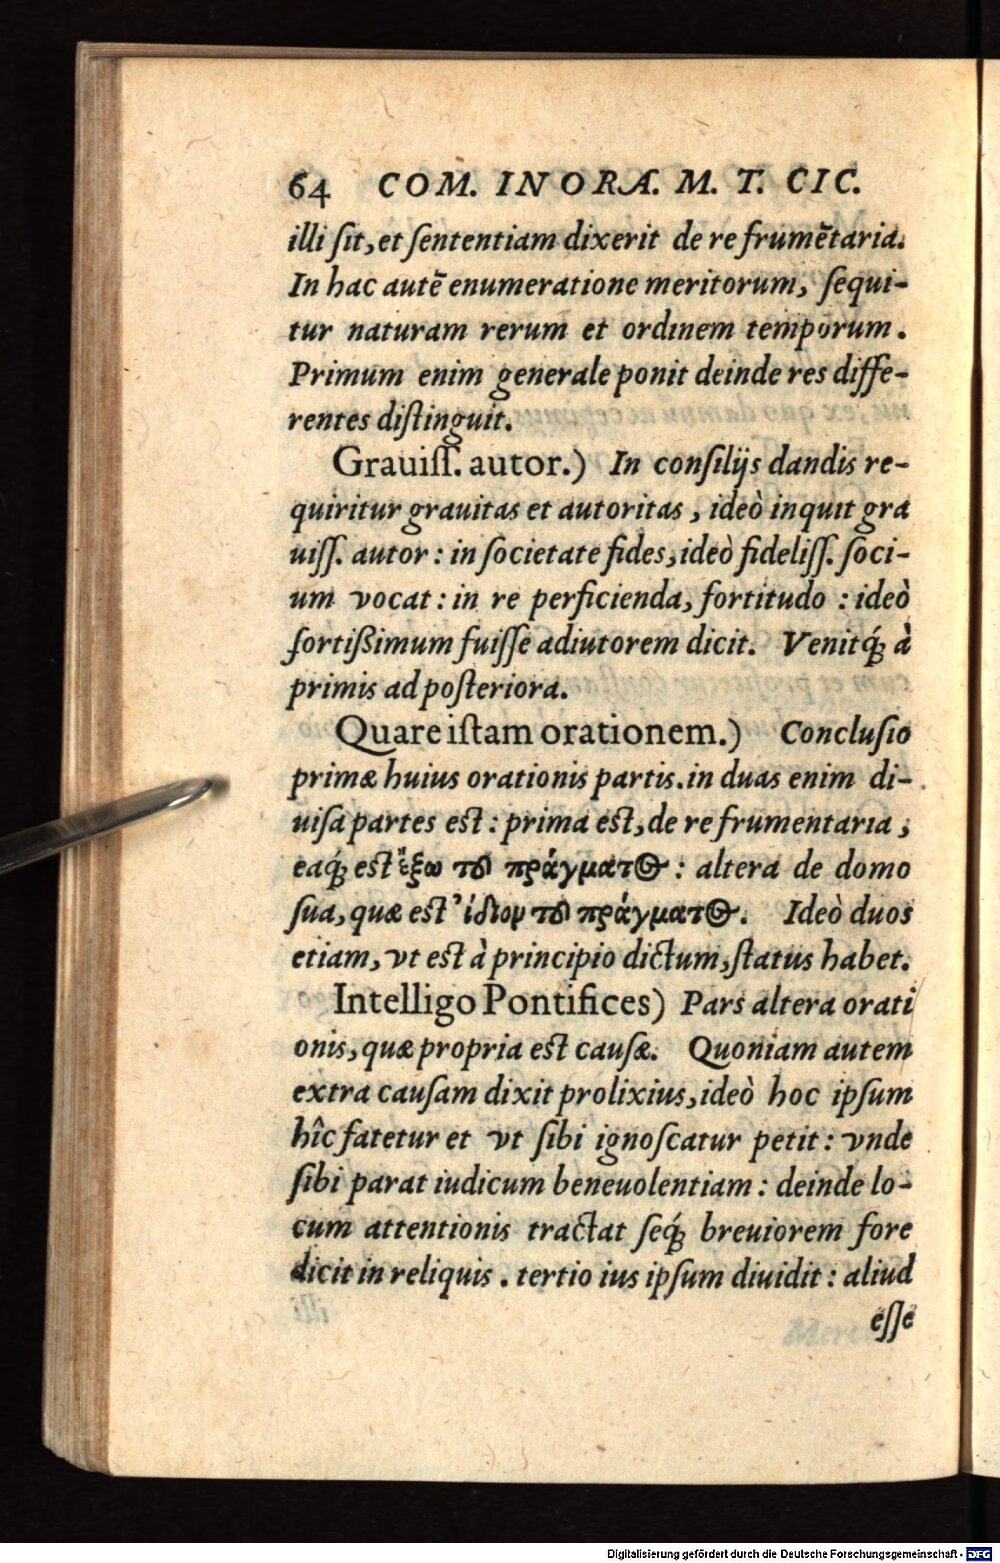 64 COM. IN ORA. M. T. CIC.
illi ſit, et ſententiam dixerit de re frumētaria.
In hac autē enumeratione meritorum, ſequi-
tur naturam rerum et ordinem temporum.
Primum enim generale ponit deinde res diffe-
rentes diſtinguit.
Grauiſſ. autor.) In conſilijs dandis re-
quiritur grauitas et autoritas, ideò inquit gra
uiſſ. autor: in ſocietate fides, ideò fideliſſ. ſoci-
um vocat: in re perficienda, fortitudo: ideò
fortißimum fuiſſe adiutorem dicit. Venitq́; à
primis ad poſteriora.
Quare iſtam orationem.) Concluſio
primæ huius orationis partis. in duas enim di-
uiſa partes est: prima est, de re frumentaria,
eaq́; est ἔξω τοῦ πράγματος: altera de domo
ſua, quæ est ἴδιον τοῦ πράγματος. Ideò duos
etiam, vt est à principio dictum, ſtatus habet.
Intelligo Pontifices) Pars altera orati
onis, quæ propria est cauſæ. Quoniam autem
extra cauſam dixit prolixius, ideò hoc ipſum
hîc fatetur et vt ſibi ignoſcatur petit: vnde
ſibi parat iudicum beneuolentiam: deinde lo-
cum attentionis tractat ſeq́; breuiorem fore
dicit in reliquis. tertio ius ipſum diuidit: aliud
eſſe
Digitalisierung gefördert durch die Deutsche Forschungsgemeinschaft - DFG